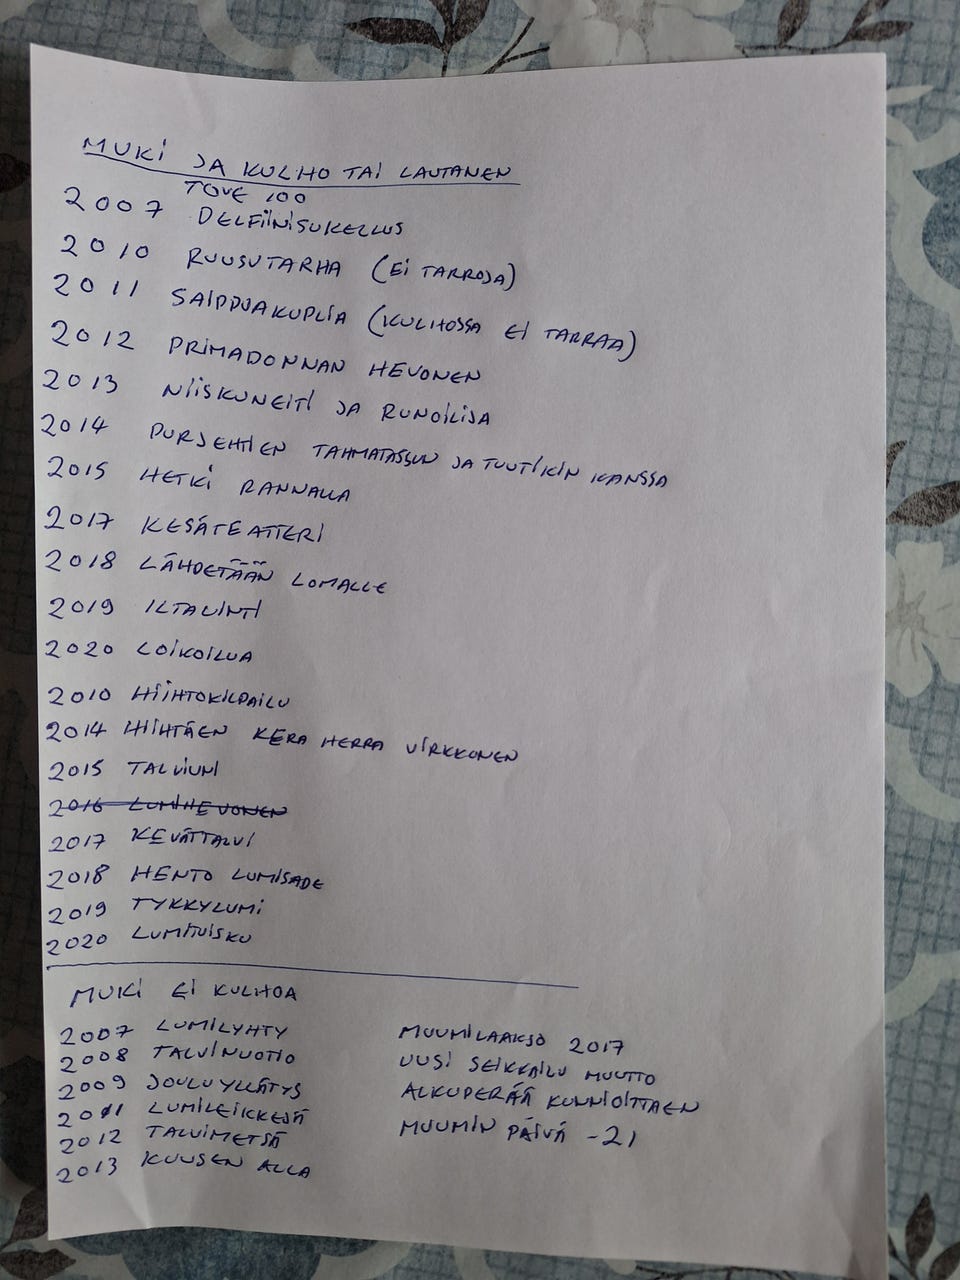 MUKI JA KULHO TAI LAUTANEN
TOVE 100
2007 DELFIINISUKELLUS
2010 RUUSUTARHA (EI TARROJA)
2011 SAIPPUAKUPLIA (KULHOSSA EI TARRAA)
2012 PRIMADONNAN HEVONEN
2013 NIISKUNEITI JA RUNOILIJA
2014 PURJEHTIEN TAHMATASSUN JA TUUTIKIN KANSSA
2015 HETKI RANNALLA
2017 KESÄTEATTERI
2018 LÄHDETÄÄN LOMALLE
2019 ILTAUINTI
2020 LOIKOILUA
2010 HIIHTOKILPAILU
2014 HIIHTÄEN KERA HERRA VIRKKONEN
2015 TALVIUNI
2016 LUMIHEVONEN
2017 KEVÄTTALVI
2018 HENTO LUMISADE
2019 TYKKYLUMI
2020 LUMITUISKU
MUKI EI KULHOA
2007 LUMILYHTY
2008 TALVINUOTIO
2009 JOULUYLLÄTYS
2011 LUMILEIKKEJÄ
2012 TALVIMETSÄ
2013 KUUSEN ALLA
MUUMILAAKSO 2017
UUSI SEIKKAILU MUUTTO
ALKUPERÄÄ KUNNIOITTAEN
MUUMIN PÄIVÄ -21